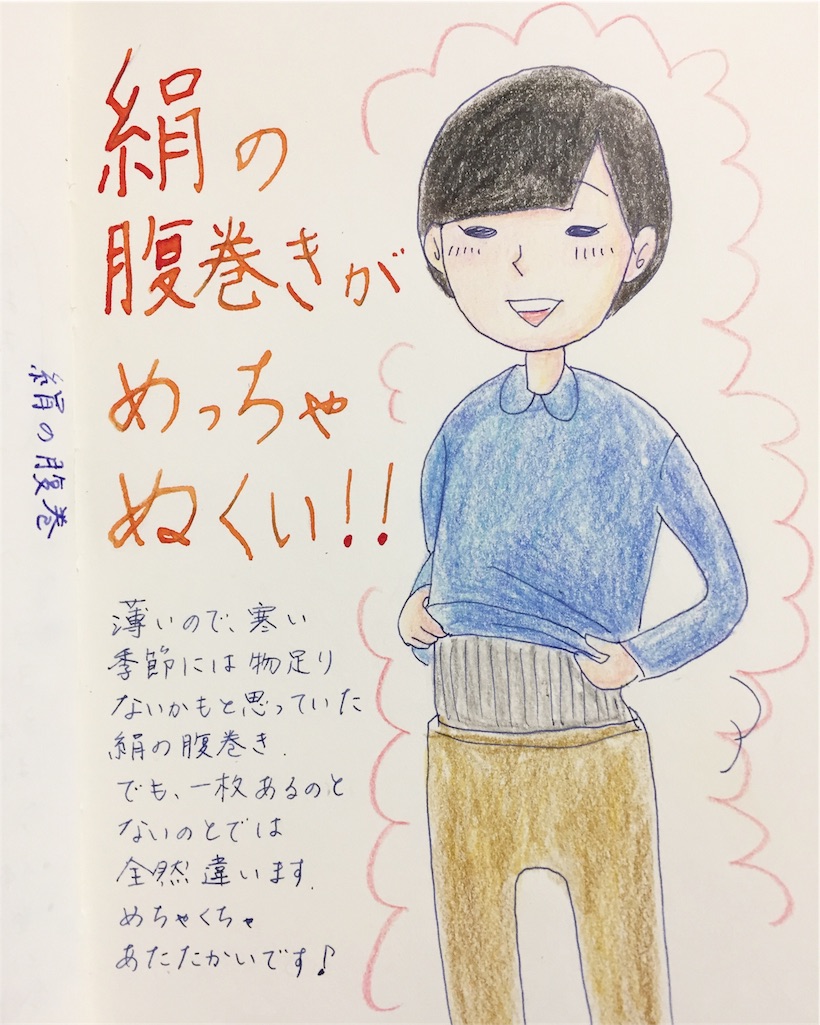 絹の
腹巻きが
めっちゃ
ぬくい!!
薄いので、寒い
季節には物足り
ないかもと思っていた
絹の腹巻き.
でも、一枚あるのと
ないのとでは
全然違います.
めちゃくちゃ
あたたかいです♪
絹の腹巻